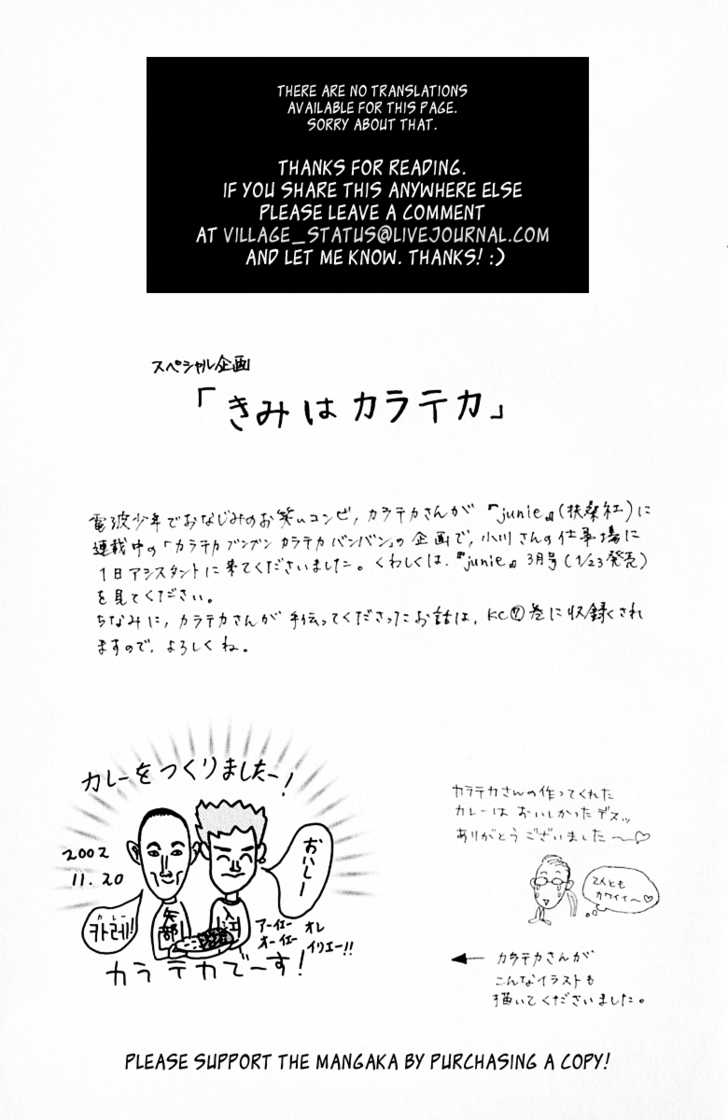 THERE ARE NO TRANSLATIONS
AVAILABLE FOR THIS PAGE.
SORRY ABOUT THAT.
THANKS FOR READING.
IF YOU SHARE THIS ANYWHERE ELSE
PLEASE LEAVE A COMMENT
AT VILLAGE_STATUS@LIVEJOURNAL.COM
AND LET ME KNOW. THANKS! :)
スペシャル企画
「きみはカラテカ」
電波少年でおなじみのお笑いコンビ, カラテカさんが『junie』(扶桑社)に
連載中の「カラテカブンブン カラテカバンバン」の企画で, 小川さんの仕事場に
1日アシスタントに来てくださいました。くわしくは,『junie』3月号(1/23発売)
を見てください。
ちなみに, カラテカさんが手伝ってくださったお話は, KC⑦巻に収録くされ
ますので, よろしくね。
カレーをつくりましたー!
2002
11.20
おいしー
카레!
カレー
矢部
入江
アーイエー オレ
オーイエー イリエー!!
カラテカでーす!
カラテカさんの作ってくれた
カレーは おいしかったデスッ
ありがとうございました〜♡
2人とも
カワイイ〜♡
← カラテカさんが
こんなイラストも
描いてくださいました。
PLEASE SUPPORT THE MANGAKA BY PURCHASING A COPY!